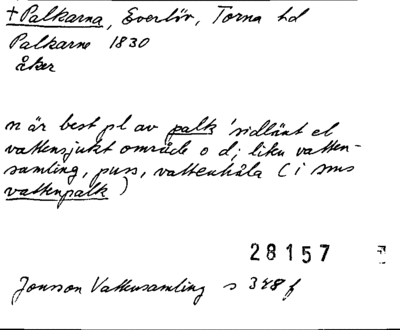 +Palkarna, Everlöv, Torna hd
Palkarne 1830
åker
n är best pl av palk 'sidlänt el
vattensjukt område o d; liten vatten-
samling, puss, vattenhåla (i sms
vattenpalk)
28157
Jonsson Vattensamling s 348 f